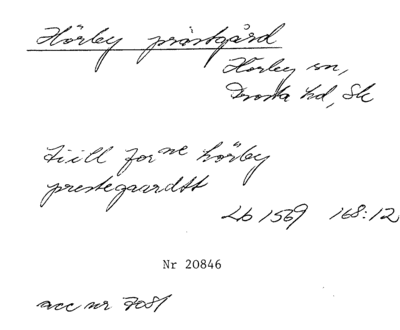 Hörby prästgård
Hörby sn,
Frosta hd, Sk
tiill for ne hörby
prestegaardtt
Lb 1569 168:12
Nr 20846
acc nr 7081